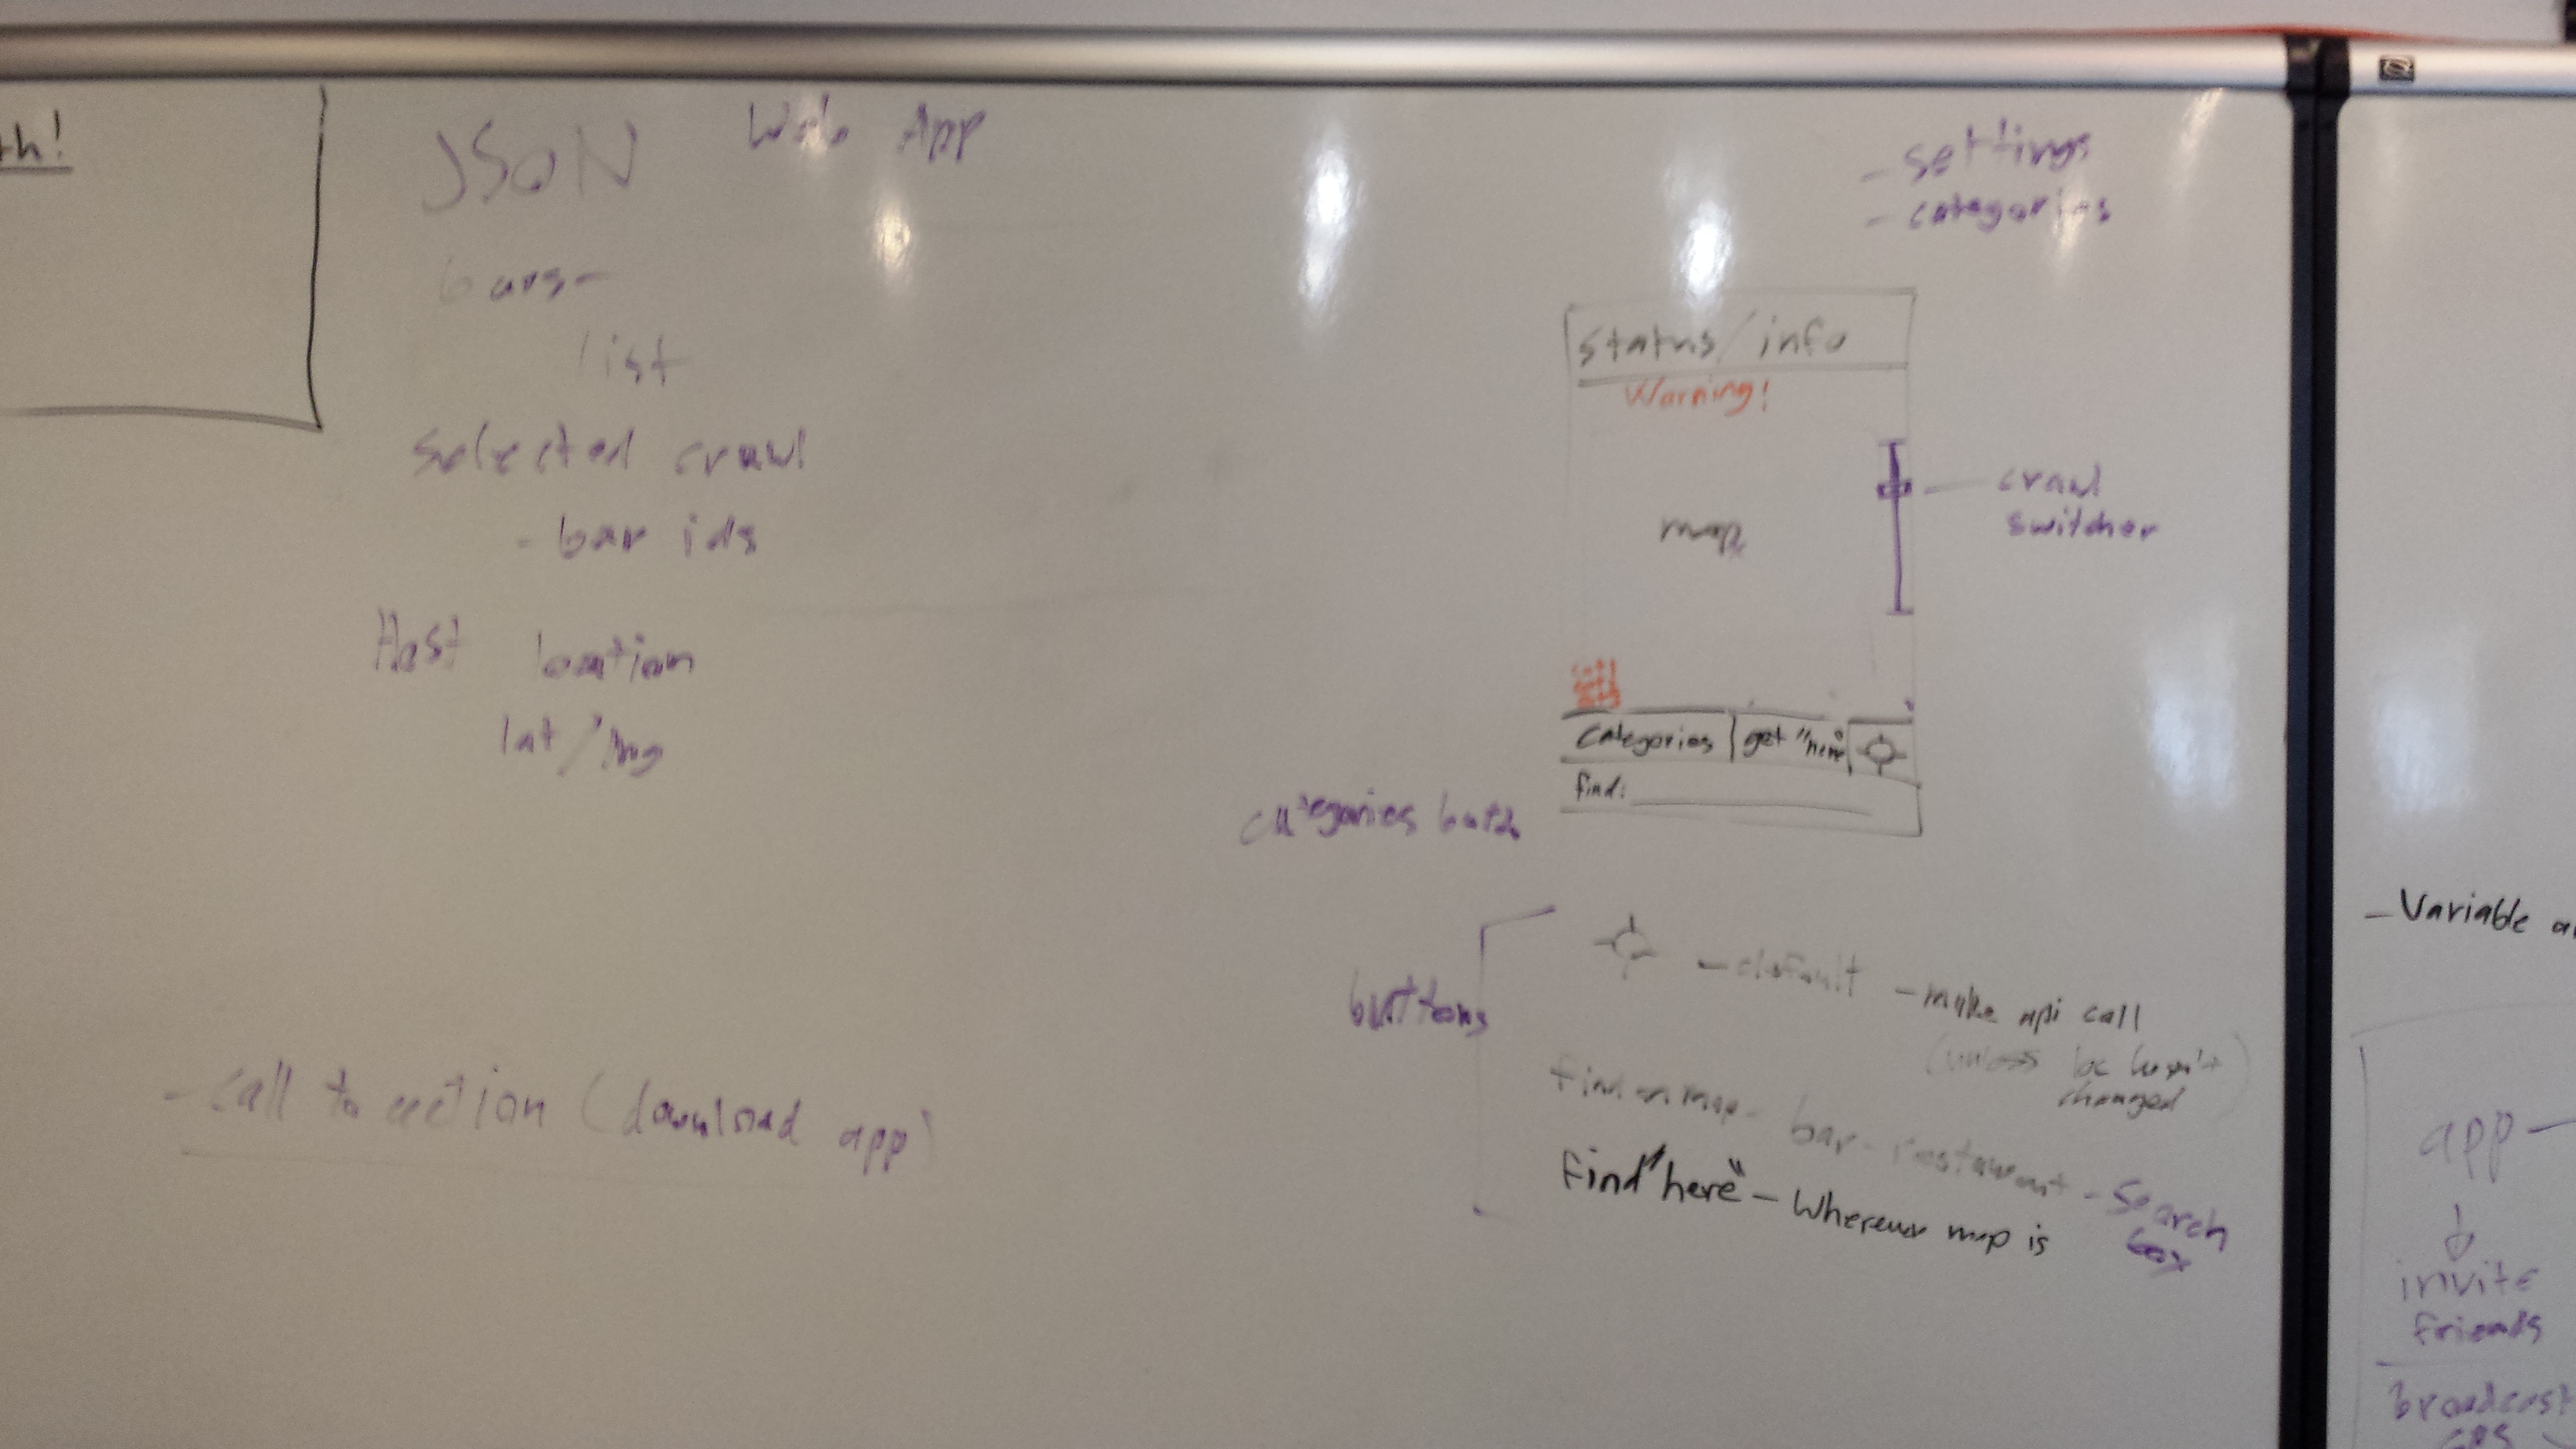 th!
JSON
Web App
bars-
list
selected crawl
- bar ids
Host location
lat/lng
- call to action (download app)
- settings
- categories
status/info
Warning!
map
crawl
switcher
categories | get "here"
find:
categories
buttons
- default - make api call
(unless loc hasn't
changed)
find on map - bar - restaurant - search
box
find "here" - Wherever map is
- Variable
app -
invite
friends
broadcast
GPS